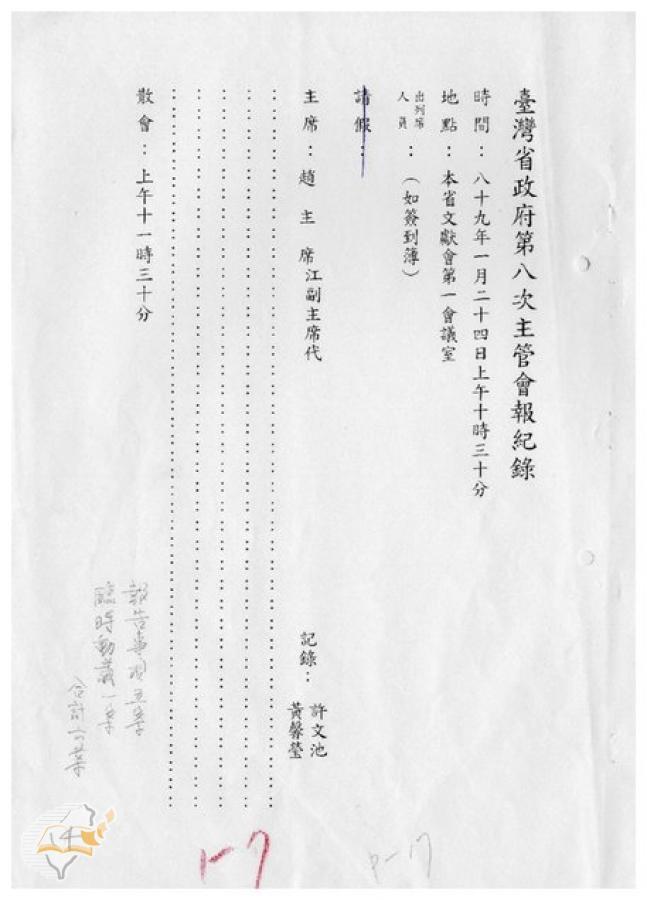 臺灣省政府第八次主管會報紀錄
時間：八十九年一月二十四日上午十時三十分
地點：本省文獻會第一會議室
出列席人員：（如簽到簿）
請假：
主席：趙主席江副主席代
記錄：許文池
黃馨瑩
散會：上午十一時三十分
報告事項五案
臨時動議一案
合計六案
1-7